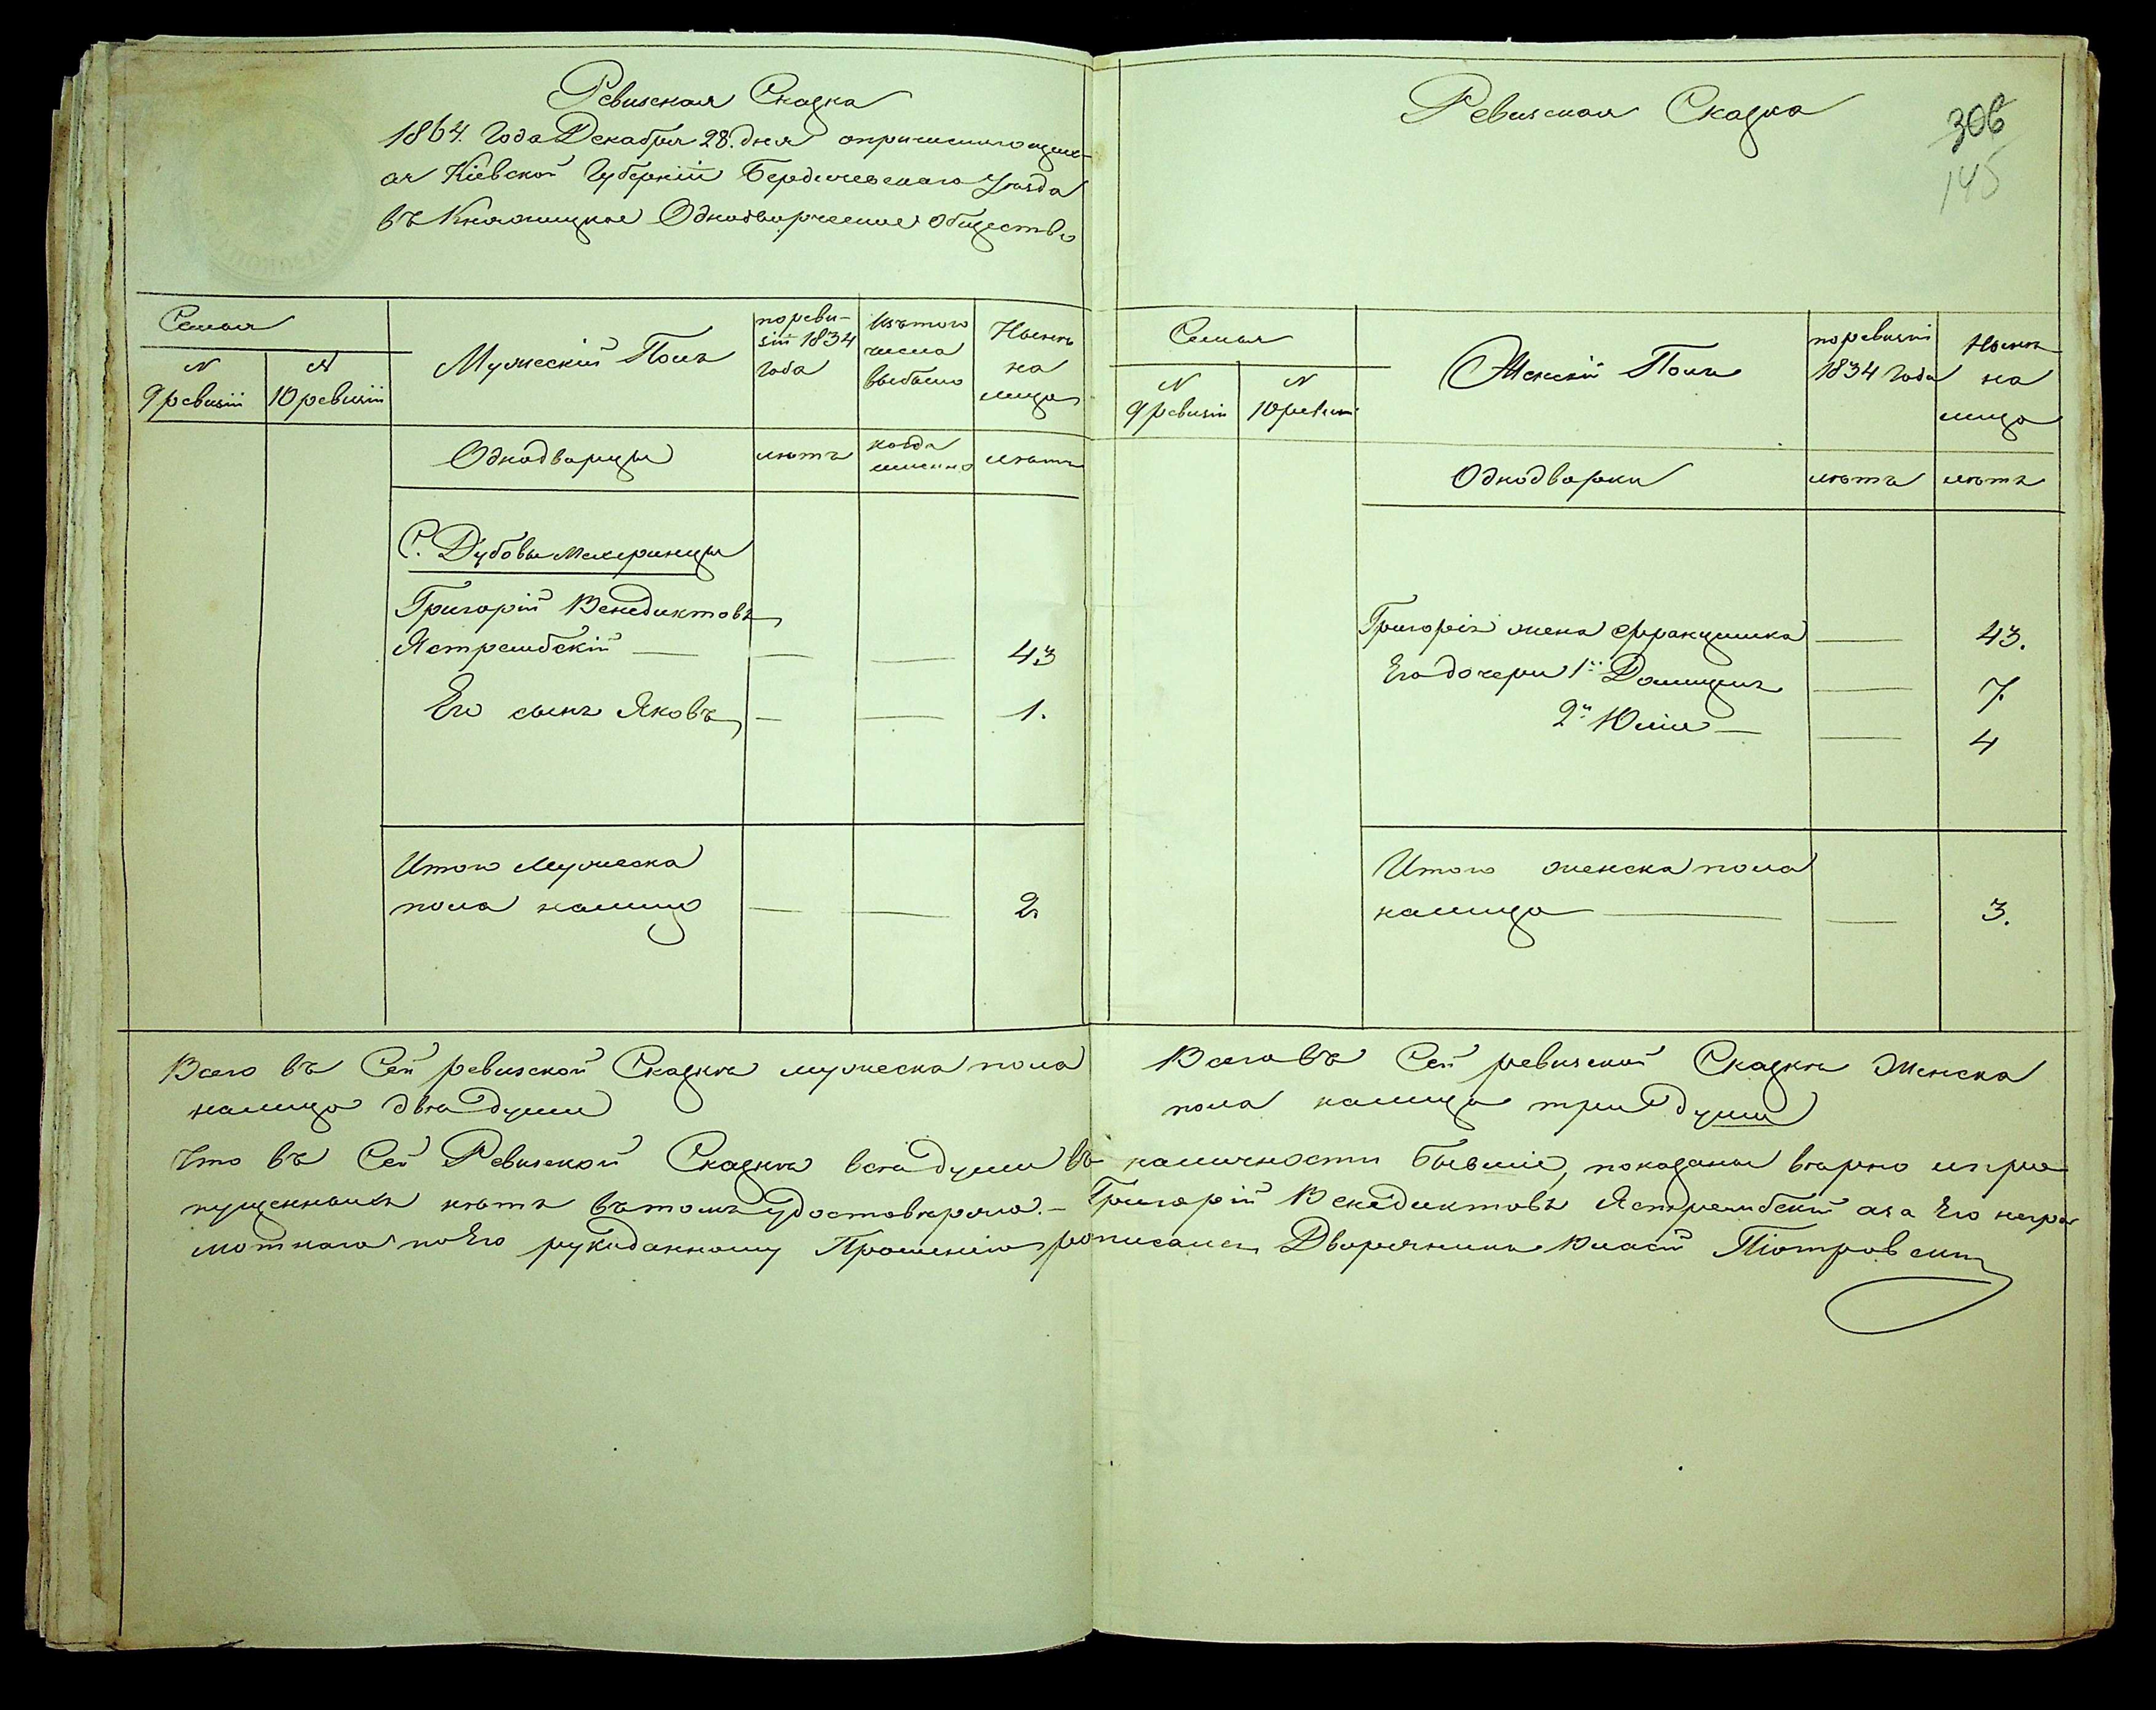 Ревизская Сказка
1864. Года Декабря 28. дня опричисляющих-
ся Кіевской Губерніи Бердичевскаго Уѣзда
въ Княжицкое Однодворческое Общество
Семья
N
9 ревизіи
N
10 ревизіи
Мужескій Полъ
по реви-
зіи 1834
года
Изътого
числа
выбыло
Нынѣ
на
лицо
Однодворцы
лѣтъ
когда
именно
лѣтъ
С. Дубовы Махаринцы
Григорій Венедиктовъ
Ястрембскій — — — 43
Его сынъ Яковъ — — 1.
Итого Мужеска
пола налицо — — 2
Всего въ Сей ревизской Сказкѣ мужеска пола
налицо двѣ души
Ревизская Сказка
306
145
Семья
N
9 ревизіи
N
10 ревизіи
Женскій Полъ
по ревизіи
1834 Года
Нынѣ
на
лицо
Однодворки
лѣтъ
лѣтъ
Григорія жена Францишка — 43.
Его дочери 1я Домицеля — 7.
2я Юлія — — 4
Итого женска пола
налицо — — 3.
Всего въ Сей ревизской Сказкѣ Женска
пола налицо три души
Что въ Сей Ревизской Сказкѣ всѣ души въ наличности бывшіе, показаны вѣрно и про
пущенныхъ нѣтъ вътомъ удостовѣряю. – Григорій Венедиктовъ Ястрембскій а за Его негра
мотнаго по Его рукоданному Прошенію росписался Дворянинъ Піотровскій